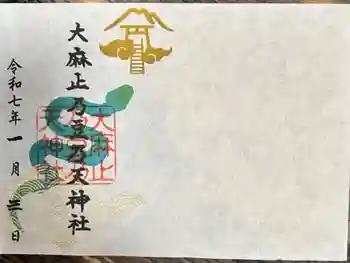 大麻止乃豆乃天神社
令和七年一月三日
大麻止
乃豆乃
天神社